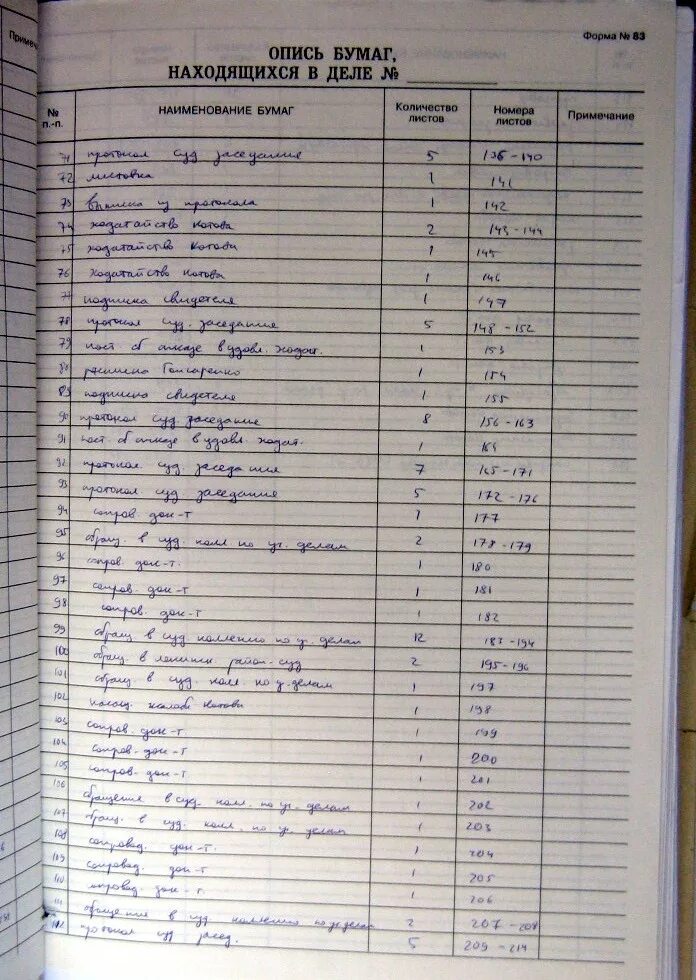 Примечан
Форма № 83
ОПИСЬ БУМАГ,
НАХОДЯЩИХСЯ В ДЕЛЕ №
№ п.-п. НАИМЕНОВАНИЕ БУМАГ Количество листов Номера листов Примечание
71 протокол суд заседания 5 136-140
72 листовка 1 141
73 выписка из протокола 1 142
74 ходатайство Котова 2 143-144
75 ходатайство Котова 1 145
76 ходатайство Котова 1 146
77 подписка свидетеля 1 147
78 протокол суд. заседания 5 148-152
79 пост. об отказе в удовл. ходат. 1 153
80 Гончаренко 1 154
89 подписка свидетеля 1 155
90 протокол суд заседания 8 156-163
91 пост об отказе в удовл. ходат. 1 164
92 протокол. суд. заседания 7 165-171
93 протокол суд заседания 5 172-176
94 сопров. док-т 1 177
95 обращ. в суд. колл по уг. делам 2 178-179
96 сопров. док-т. 1 180
97 сопров. док-т 1 181
98 сопров. док-т 1 182
99 обращ в суд коллегию по уг. делам 12 183-194
100 обращ. в район-суд 2 195-196
101 обращ. в суд. колл. по у-делам 1 197
102 жалобы Котова 1 198
103 сопров. док-т 1 199
104 сопров. док-т 1 200
105 сопров-док-т 1 201
106 обращение в суд. колл. по уг. делам 1 202
107 обращ. в суд. колл. по уг. делам 1 203
108 сопровод. док-т. 1 204
109 сопровод. док-т 1 205
110 сопровод. док-т. 1 206
111 обращение в суд. коллегию по уг. делам 2 207-208
112 протокол суд засед. 5 209-214